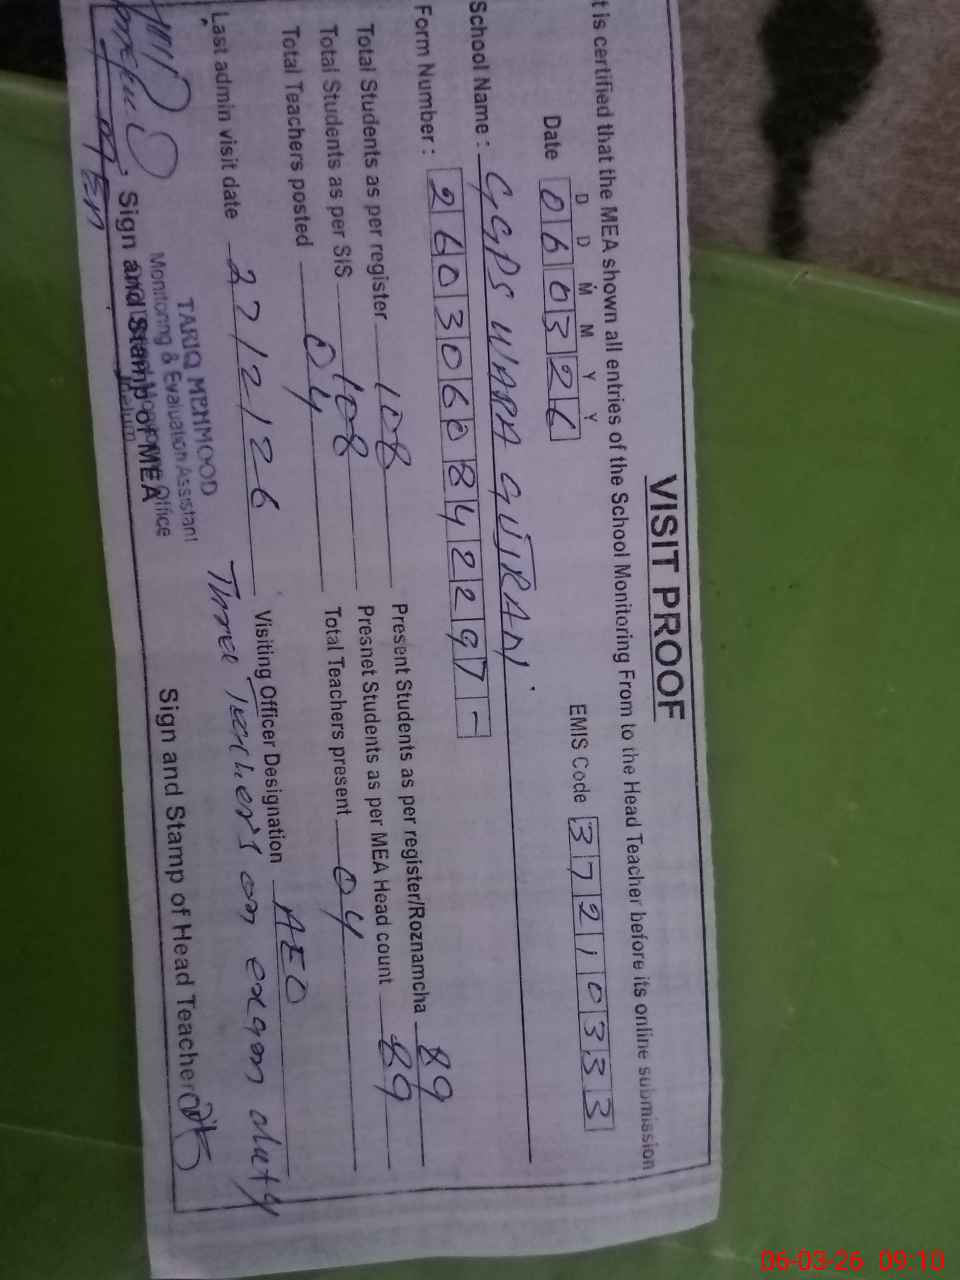 VISIT PROOF
t is certified that the MEA shown all entries of the School Monitoring From to the Head Teacher before its online submission
D D M M Y Y
Date 060326 EMIS Code 37210333
School Name : GGPS WARA GUJRAN
Form Number : 260306084229 7-
Total Students as per register 108 Present Students as per register/Roznamcha 89
Total Students as per SIS 108 Presnet Students as per MEA Head count 89
Total Teachers posted 04 Total Teachers present 04
Last admin visit date Visiting Officer Designation AEO
Three Teachers on exam duty
TARIQ MEHMOOD
Monitoring & Evaluation Assistant
Sign and Stamp of MEA Sign and Stamp of Head Teacher
06-03-26 09:10